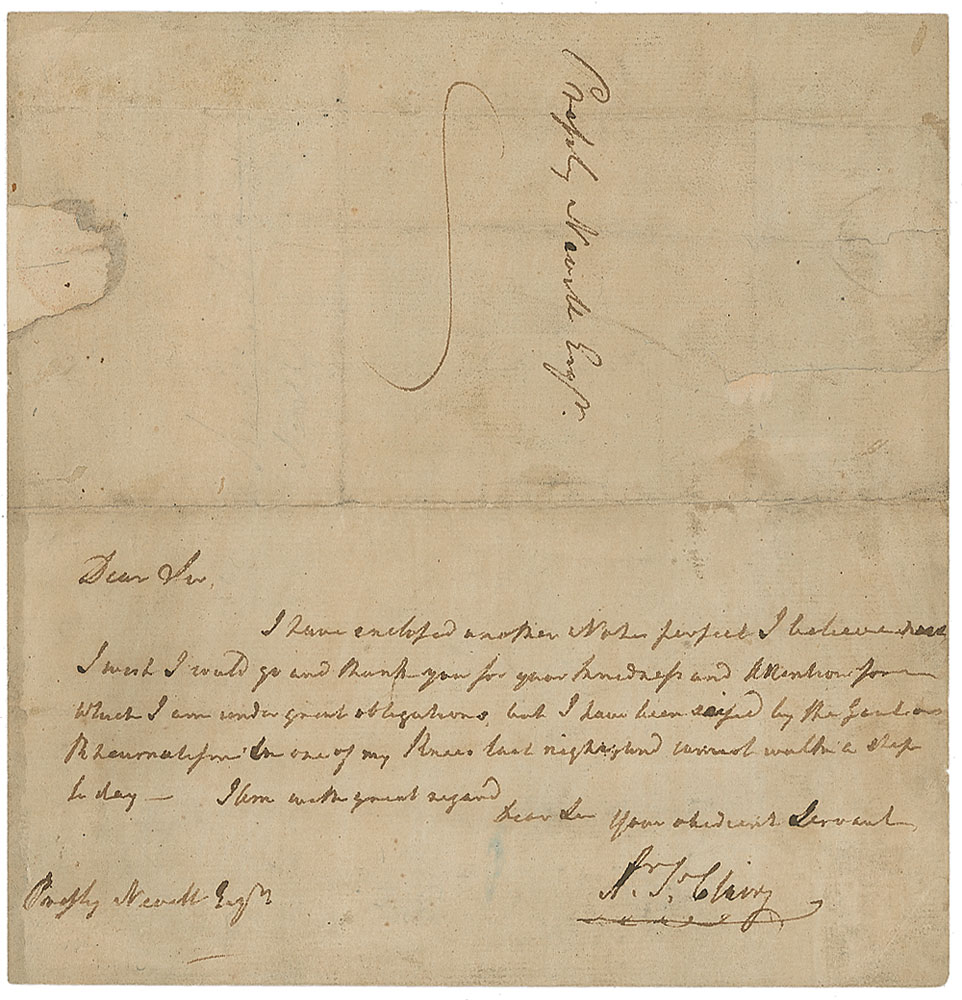 Presley Nevill Esqr.
Dear Sir,
I have enclosed another Note perfect I believe
I wish I could go and thank you for your kindness and Attention for
which I am under great obligations, but I have been seized by the Gout or
Rheumatism in one of my Knees last night and cannot walk a step
to day — I am with great regard
Dear Sir Your obedient Servant
Ar. St. Clair
Presley Nevill Esqr